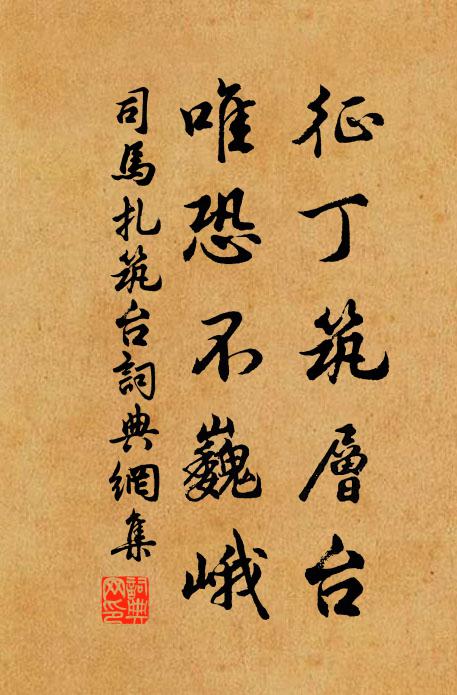 征丁筑層台
唯恐不巍峨
司馬扎筑台詞典網集
詞典网印